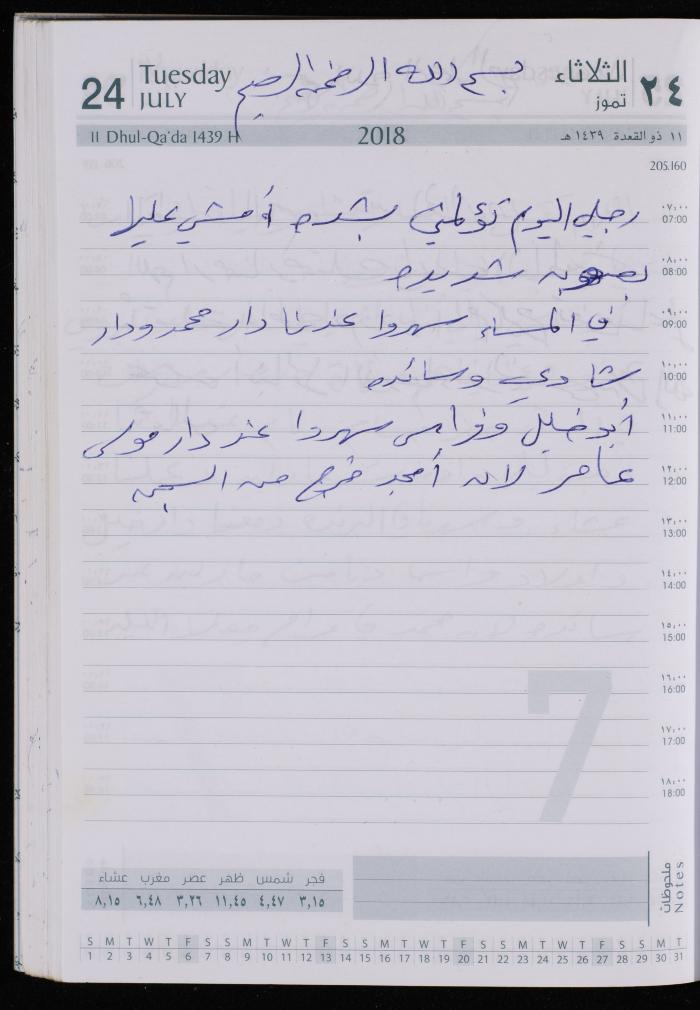 24 Tuesday JULY
بسم الله الرحمن الرحيم
الثلاثاء ٢٤ تموز
11 Dhul-Qa'da 1439 H 2018 ١١ ذو القعدة ١٤٣٩ هـ
205.160
رجلي اليوم تؤلمني بشده أمشي عليها
بصعوبه شديده
في المساء سهروا عندنا دار محمد ودار
شادي وسائده
أبو خليل وفراس سهروا عند دار موسى
عامر لانه أمجد خرج من السجن
٠٧:٠٠ 07:00
٠٨:٠٠ 08:00
٠٩:٠٠ 09:00
١٠:٠٠ 10:00
١١:٠٠ 11:00
١٢:٠٠ 12:00
١٣:٠٠ 13:00
١٤:٠٠ 14:00
١٥:٠٠ 15:00
١٦:٠٠ 16:00
١٧:٠٠ 17:00
١٨:٠٠ 18:00
7
فجر شمس ظهر عصر مغرب عشاء
٣,١٥ ٤,٤٧ ١١,٤٥ ٣,٢٦ ٦,٤٨ ٨,١٥
ملحوظات
Notes
S M T W T F S S M T W T F S S M T W T F S S M T W T F S S M T
1 2 3 4 5 6 7 8 9 10 11 12 13 14 15 16 17 18 19 20 21 22 23 24 25 26 27 28 29 30 31